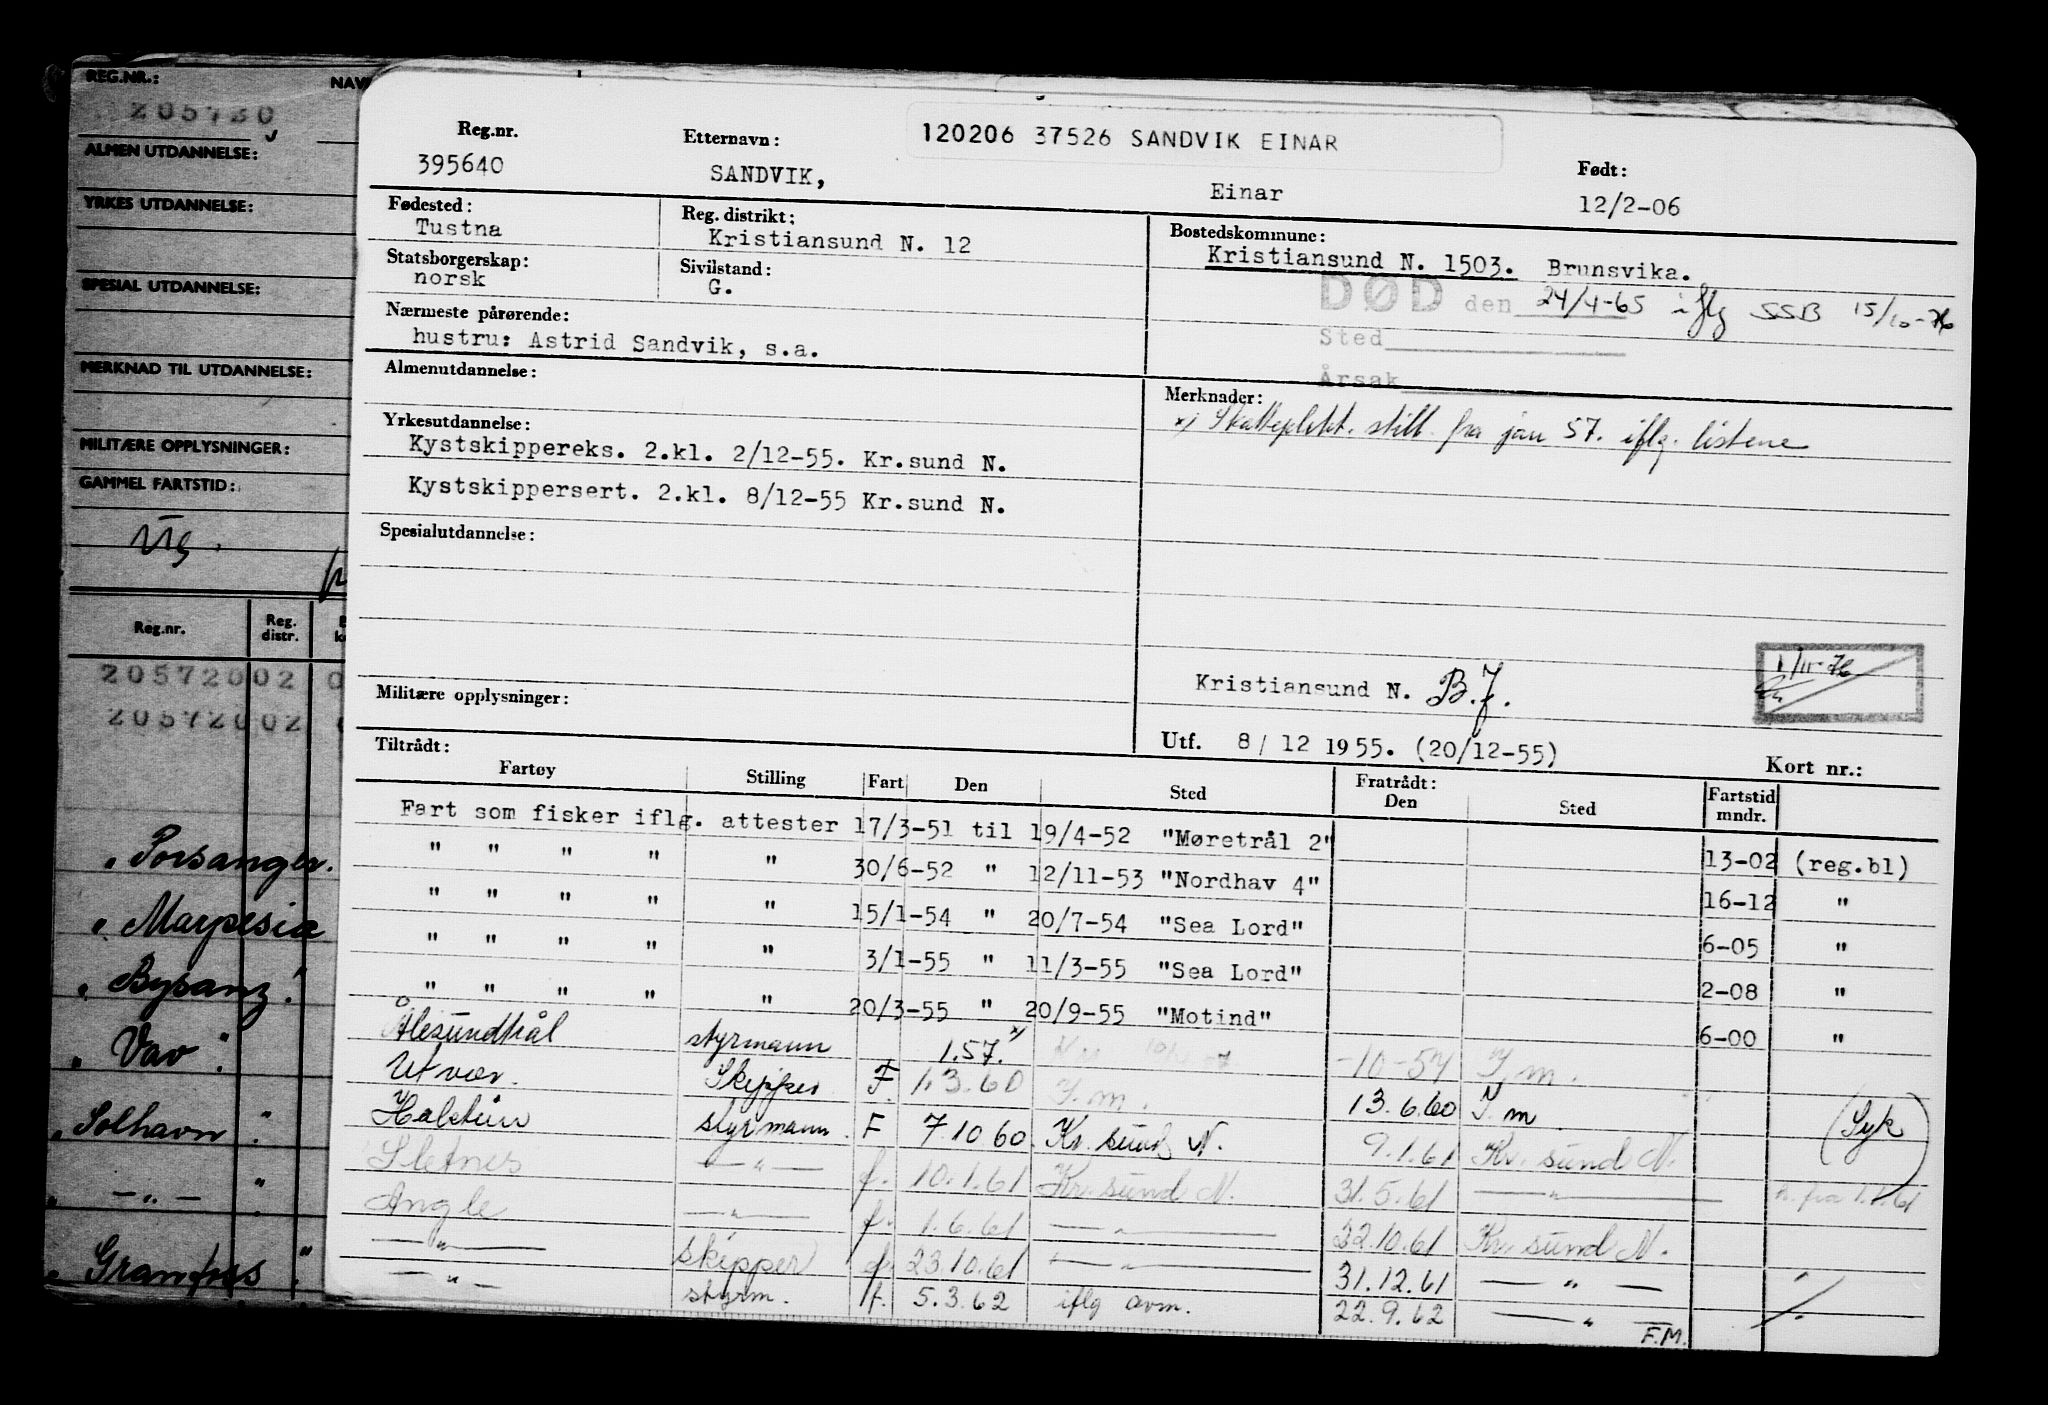 REG.NR.:
NAV
205720
ALMEN UTDANNELSE:
YRKES UTDANNELSE:
SPESIAL UTDANNELSE:
MERKNAD TIL UTDANNELSE:
MILITÆRE OPPLYSNINGER:
GAMMEL FARTSTID:
Reg.nr. Reg. distr.
20572002 0
20572002
" Porsanger.
" Marpesia
" Bysanz "
" Vav "
" Solhavn "
" — " — "
" Granfnes "
120206 37526 SANDVIK EINAR
Reg.nr. Etternavn: Født:
395640 SANDVIK, Einar 12/2-06
Fødested: Reg. distrikt: Bostedskommune:
Tustna Kristiansund N. 12 Kristiansund N. 1503. Brunsvika.
Statsborgerskap: Sivilstand:
norsk G.
DØD den 24/4-65 iflg SSB 15/10-76
Nærmeste pårørende: Sted
hustru: Astrid Sandvik, s.a.
Årsak
Almenutdannelse: Merknader:
x) Skatteplikt. still. fra jan 57. iflg. listene
Yrkesutdannelse:
Kystskippereks. 2.kl. 2/12-55. Kr.sund N.
Kystskippersert. 2.kl. 8/12-55 Kr.sund N.
Spesialutdannelse:
1/11-76
Kristiansund N. B.J.
Militære opplysninger:
Utf. 8/ 12 1955. (20/12-55)
Tiltrådt: Fratrådt: Kort nr.:
Fartøy Stilling Fart Den Sted Den Sted Fartstid mndr.
Fart som fisker iflg. attester 17/3-51 til 19/4-52 "Møretrål 2" 13-02 (reg.bl)
" " " " " 30/6-52 " 12/11-53 "Nordhav 4" 16-12 "
" " " " " 15/1-54 " 20/7-54 "Sea Lord" 6-05 "
" " " " " 3/1-55 " 11/3-55 "Sea Lord" 2-08 "
" " " " " 20/3-55 " 20/9-55 "Motind" 6-00 "
Ålesundtrål styrmann 1.57. x) -10-57 I.m.
Utvær. Skipper F. 1.3.60 I.m. 13.6.60 I.m (Syk)
styrmann. F 7.10 60 Kr.sund N. 9.1.61 Kr. sund N.
Sletnes — " — f. 10.1.61 Kr.sund N. 31.5.61 — " — fra 1.1.61
Angle — " — f. 1.6.61 — " — 22.10.61 Kr. sund N.
— " — skipper f. 23.10.61 — " — 31.12.61 — " —
— " — styrm. f. 5.3.62 iflg avm. 22.9.62 — " —
F.M.